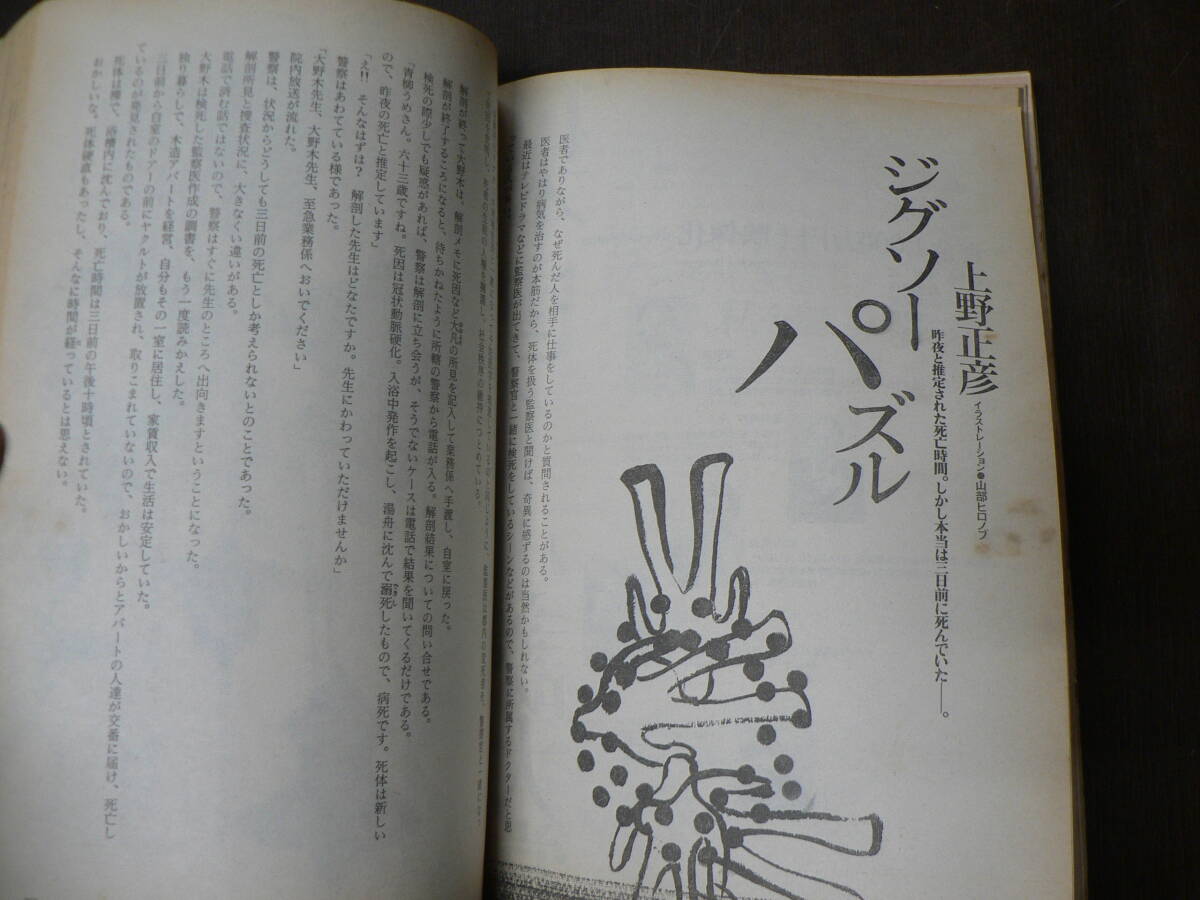 ジグソーパズル
上野正彦
イラストレーション●山部ヒロノブ
昨夜と推定された死亡時間。しかし本当は三日前に死んでいた——。
医者でありながら、なぜ死んだ人を相手に仕事をしているのかと質問されることがある。
医者はやはり病気を治すのが本筋だから、死体を扱う監察医と聞けば、奇異に感ずるのは当然かもしれない。
最近はテレビドラマなどに監察医が出てきて、警察官と一緒に検死をしているシーンなどがあるので、警察に所属するドクターだと思
解剖が終って大野木は、解剖メモに死因など大凡の所見を記入して業務係へ手渡し、自室に戻った。
解剖が終了するころになると、待ちかねたように所轄の警察から電話が入る。解剖結果についての問い合せである。
検死の際少しでも疑惑があれば、警察は解剖に立ち会うが、そうでないケースは電話で結果を聞いてくるだけである。
「青柳うめさん。六十三歳ですね。死因は冠状動脈硬化。入浴中発作を起こし、湯舟に沈んで溺死したもので、病死です。死体は新しい
ので、昨夜の死亡と推定しています」
「え!! そんなはずは? 解剖した先生はどなたですか。先生にかわっていただけませんか」
警察はあわてている様であった。
「大野木先生、大野木先生、至急業務係へおいでください」
院内放送が流れた。
警察は、状況からどうしても三日前の死亡としか考えられないとのことであった。
解剖所見と捜査状況に、大きなくい違いがある。
電話で済む話ではないので、警察はすぐに先生のところへ出向きますということになった。
大野木は検死した監察医作成の調書を、もう一度読みかえした。
独り暮らしで、木造アパートを経営、自分もその一室に居住し、家賃収入で生活は安定していた。
三日前から自室のドアーの前にヤクルトが放置され、取りこまれていないので、おかしいからとアパートの人達が交番に届け、死亡し
ているのが発見されたものである。
死体は裸で、浴槽内に沈んでおり、死亡時間は三日前の午後十時頃とされていた。
おかしいな。死体硬直もあったし、そんなに時間が経っているとは思えない。